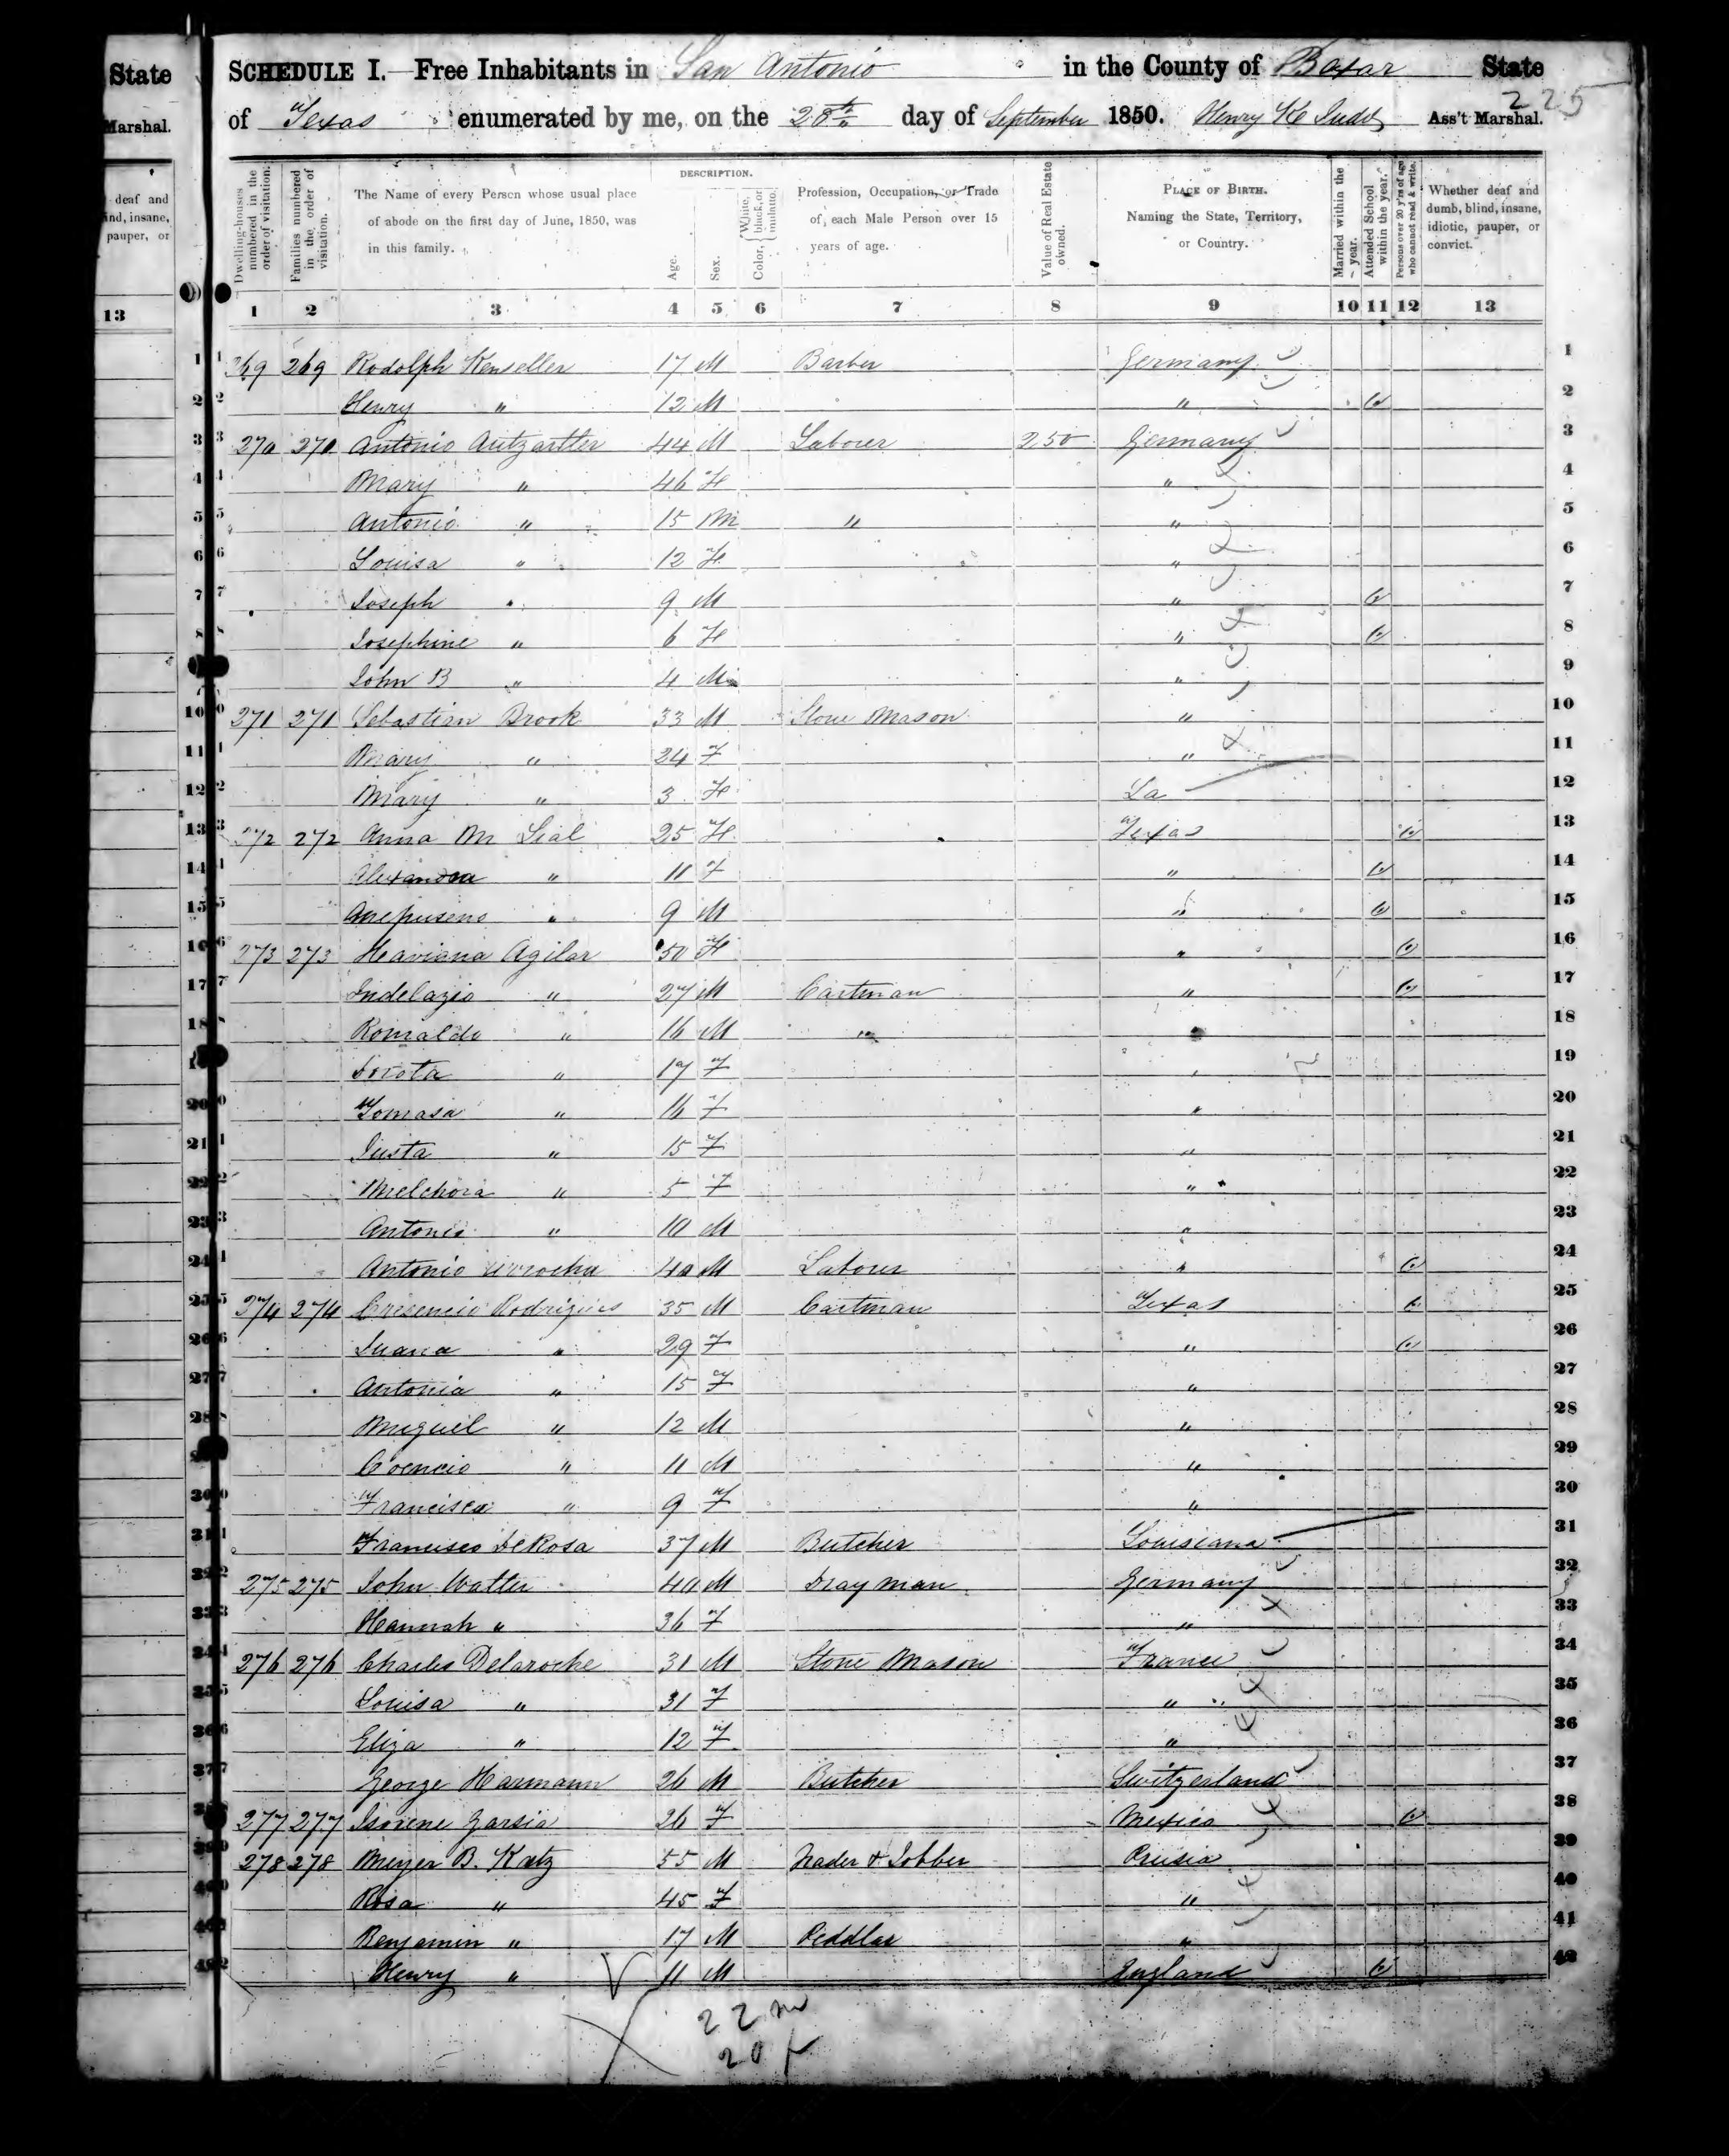 State
Marshal.
deaf and
ind, insane,
pauper, or
13
SCHEDULE I.—Free Inhabitants in San Antonio in the County of Bexar State
of Texas enumerated by me, on the 28th day of September 1850. Henry K Judd Ass't Marshal.
225
DESCRIPTION.
Dwelling-houses numbered in the order of visitation.
Families numbered in the order of visitation.
The Name of every Person whose usual place of abode on the first day of June, 1850, was in this family.
Age.
Sex.
Color, { White, black, or mulatto.
Profession, Occupation, or Trade of each Male Person over 15 years of age.
Value of Real Estate owned.
PLACE OF BIRTH. Naming the State, Territory, or Country.
Married within the year.
Attended School within the year.
Persons over 20 y'rs of age who cannot read & write.
Whether deaf and dumb, blind, insane, idiotic, pauper, or convict.
1 2 3 4 5 6 7 8 9 10 11 12 13
1 269 269 Rodolph Kenseller 17 M Barber Germany 1
2 Henry " 12 M " 2
3 270 270 Antonio Autzartter 44 M Labourer 250 Germany 3
4 Mary " 46 F " 4
5 Antonio " 15 M " " 5
6 Louisa " 12 F " 6
7 Joseph " 9 M " 7
8 Josephine " 6 F " 8
John B " 4 M " 9
10 271 271 Sebastian Brook 33 M Stone Mason " 10
11 Mary " 24 F " 11
12 Mary " 3 F La 12
13 272 272 Anna M Lial 25 F Texas 13
14 Alexandra " 11 F " 14
15 Anepuseno " 9 M " 15
16 273 273 Haviana Agilar 50 F " 16
17 Indelazio " 27 M Cartman " 17
18 Romaldo " 16 M " " 18
Dorota " 17 F " 19
20 Tomasa " 16 F " 20
21 Justa " 15 F " 21
22 Melchora " 5 F " 22
23 Antonio " 10 M " 23
24 Antonio Urrocha 40 M Labourer " 24
25 274 274 Cresencio Rodrigues 35 M Cartman Texas 25
26 Juana " 29 F " 26
27 Antonia " 15 F " 27
28 Miguel " 12 M " 28
Coencio " 11 M " 29
30 Francisca " 9 F " 30
31 Francisco DeRosa 37 M Butcher Louisiana 31
32 275 275 John Watter 40 M Dray man Germany 32
33 Hannah " 36 F " 33
34 276 276 Charles Delaroche 31 M Stone Mason France 34
35 Louisa " 31 F " 35
36 Eliza " 12 F " 36
37 George Harmann 26 M Butcher Switzerland 37
277 277 Ismene Garsia 26 F Mexico 38
39 278 278 Meyer B. Katz 55 M Trader & Jobber Prusia 39
40 Rosa " 45 F " 40
41 Benjamin " 17 M Peddlar " 41
42 Henry " 11 M England 42
22 m
20 f